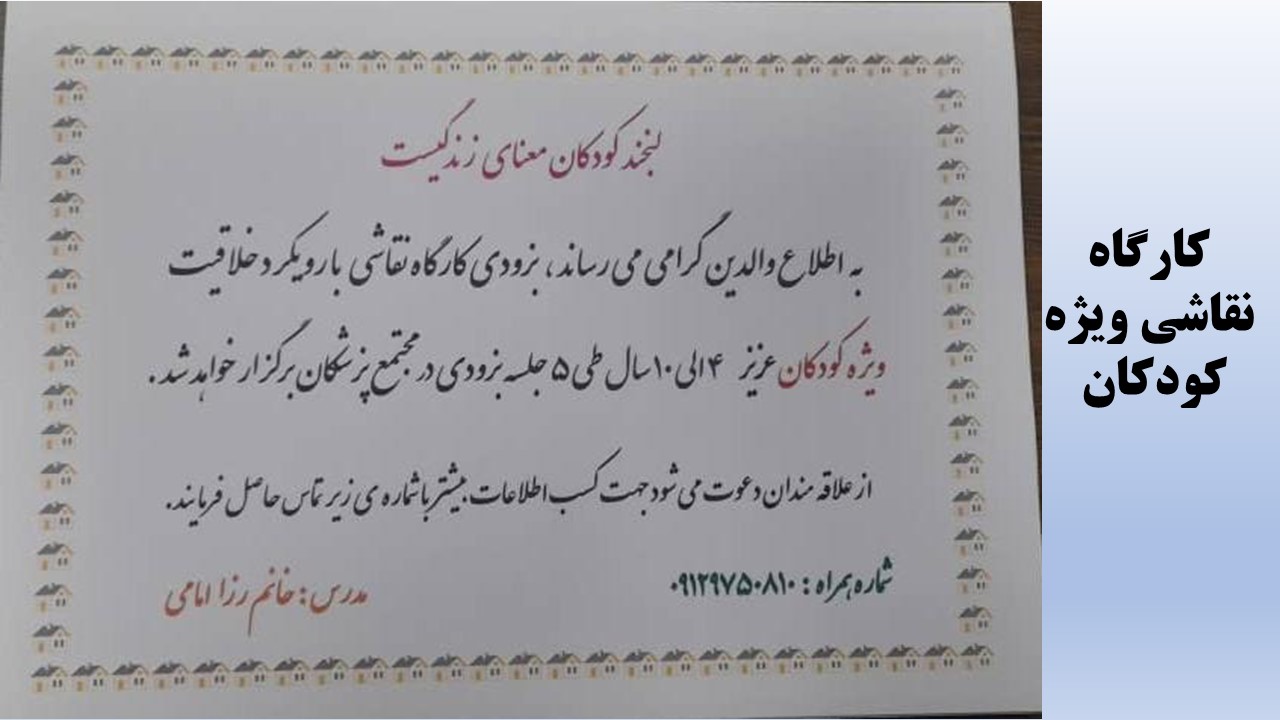 لبخند کودکان معنای زندگیست
به اطلاع والدین گرامی می رساند ، بزودی کارگاه نقاشی با رویکرد خلاقیت
ویژه کودکان عزیز ۴ الی ۱۰ سال طی ۵ جلسه بزودی در مجتمع پزشکان برگزار خواهد شد .
از علاقه مندان دعوت می شود جهت کسب اطلاعات بیشتر با شماره ی زیر تماس حاصل فرمایند.
شماره همراه : ۰۹۱۲۹۷۵۰۸۱۰
مدرس : خانم رزا امامی
کارگاه
نقاشی ویژه
کودکان